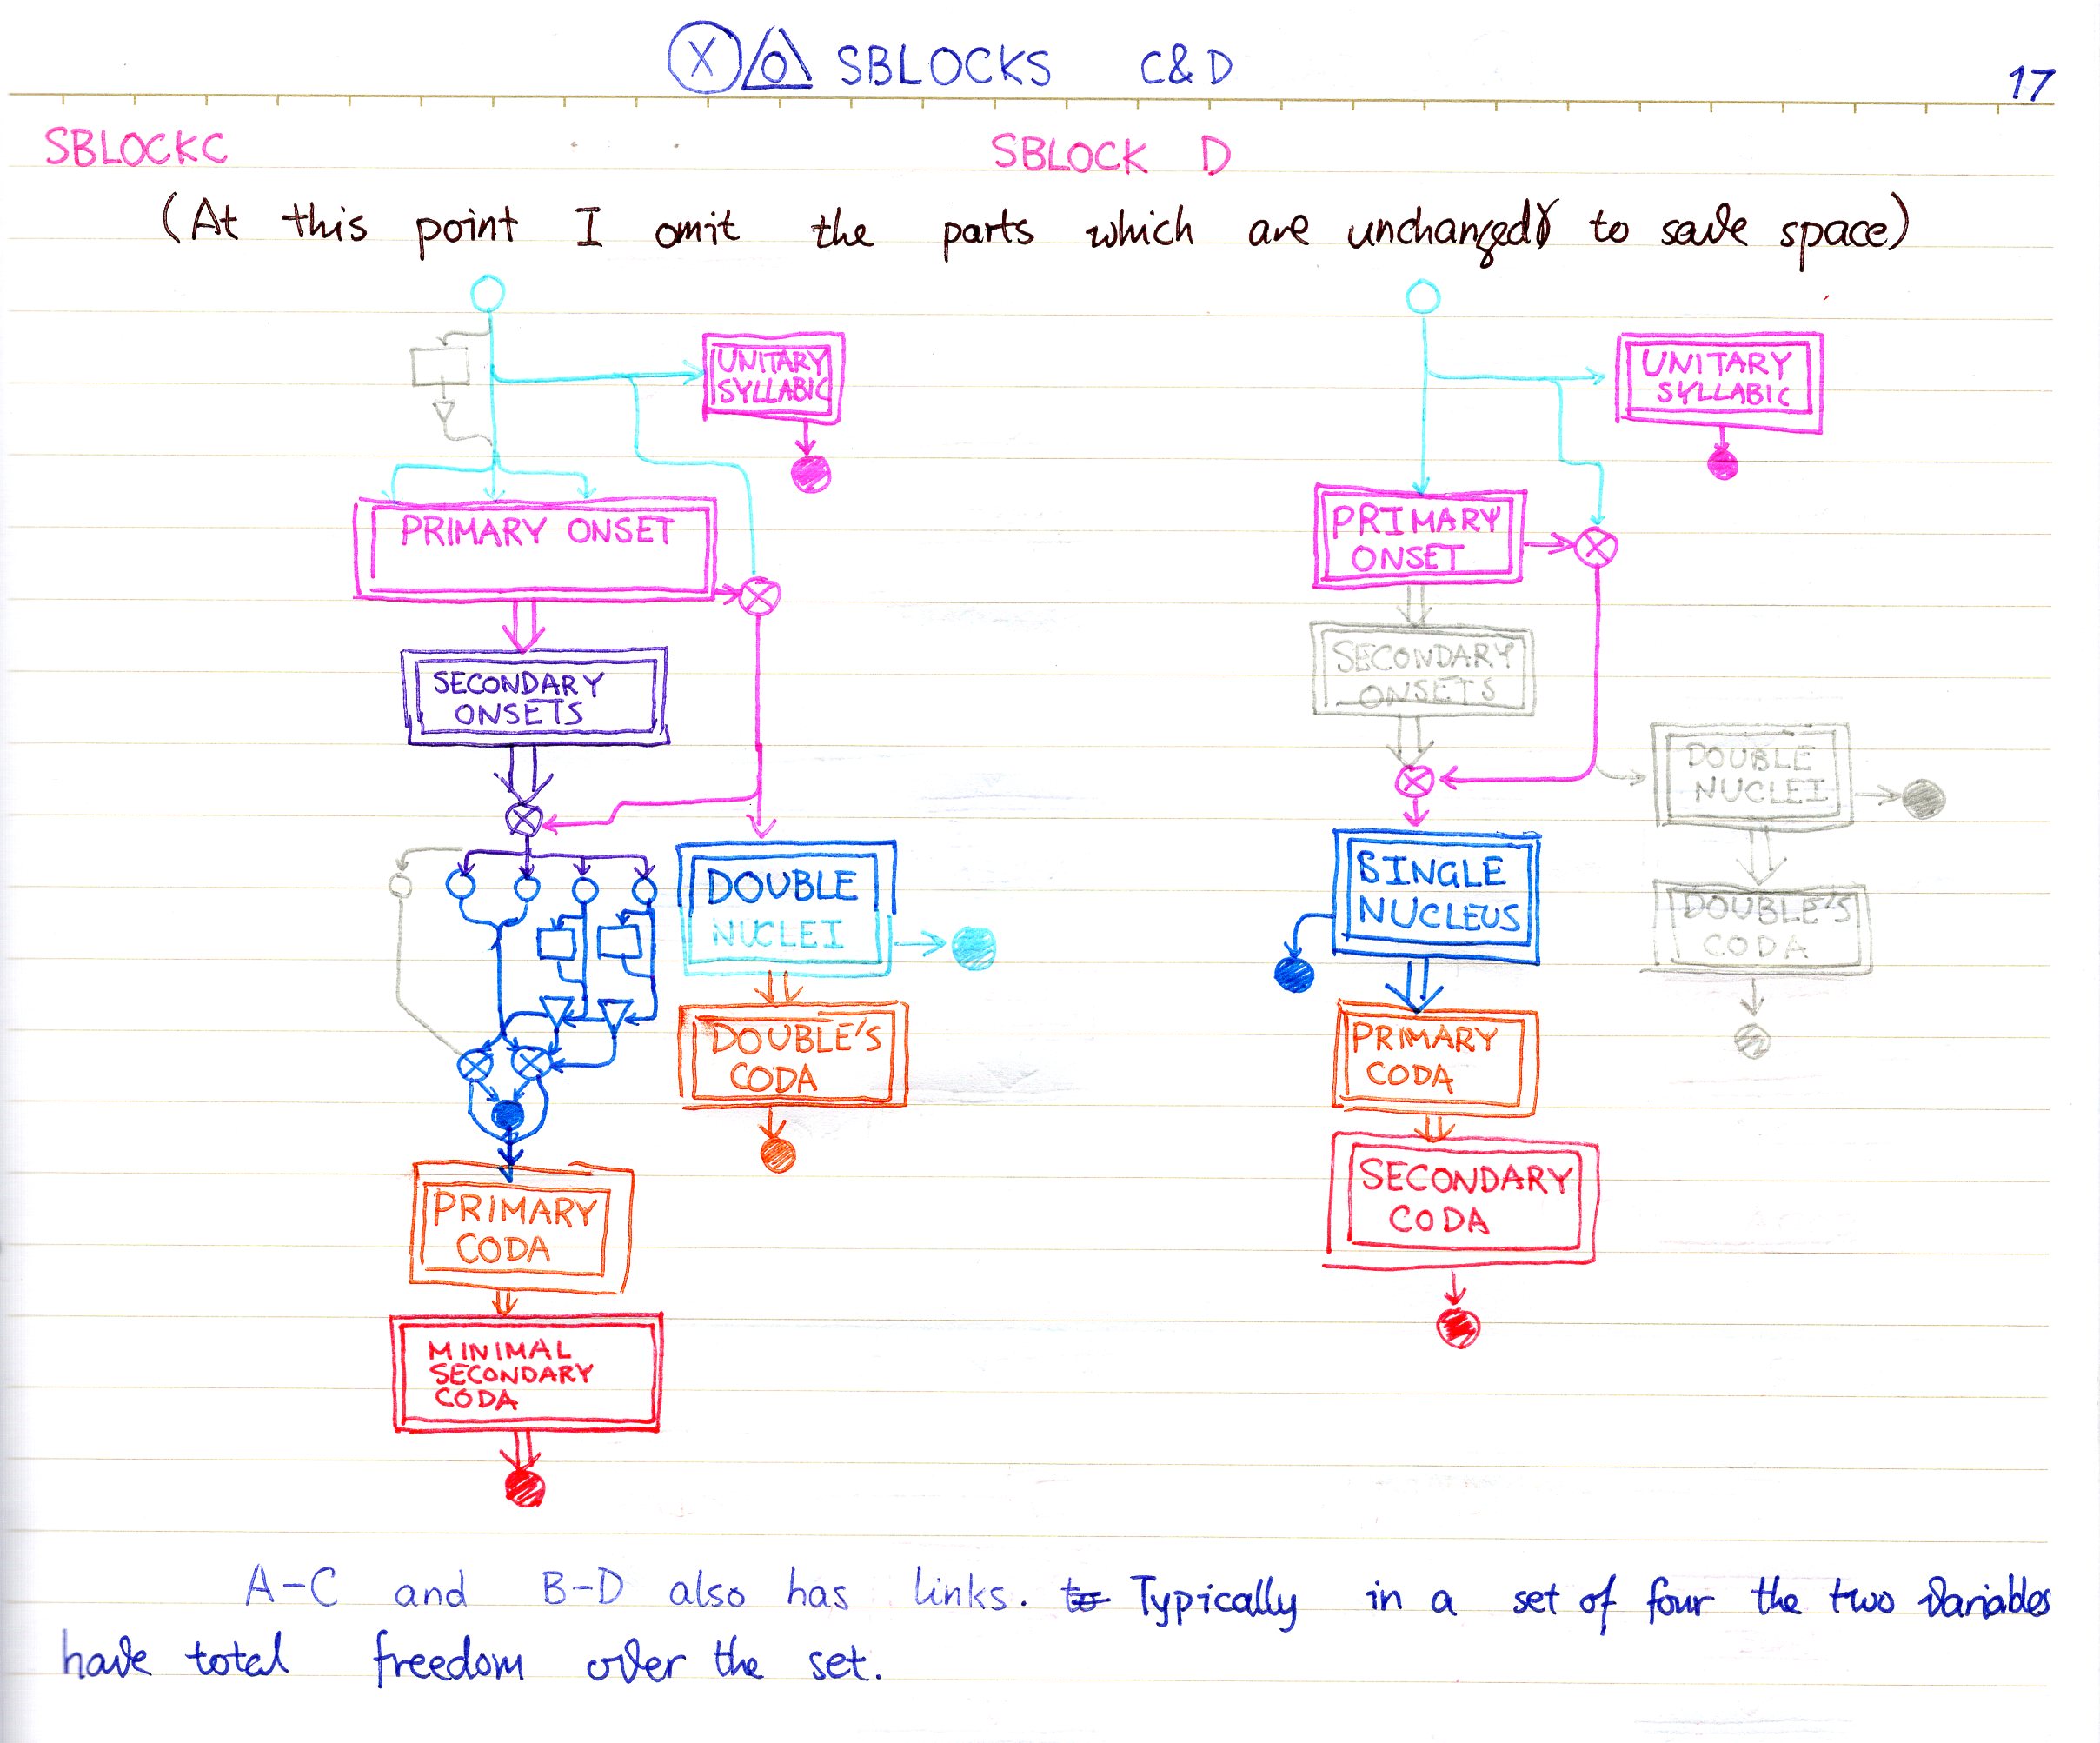 X SBLOCKS C&D
17
SBLOCKC
SBLOCK D
(At this point I omit the parts which are unchanged to save space)
UNITARY
SYLLABIC
PRIMARY ONSET
SECONDARY
ONSETS
DOUBLE
NUCLEI
DOUBLE'S
CODA
PRIMARY
CODA
MINIMAL
SECONDARY
CODA
UNITARY
SYLLABIC
PRIMARY
ONSET
SECONDARY
ONSETS
DOUBLE
NUCLEI
SINGLE
NUCLEUS
DOUBLE'S
CODA
PRIMARY
CODA
SECONDARY
CODA
A-C and B-D also has links. to Typically in a set of four the two variables
have total freedom over the set.